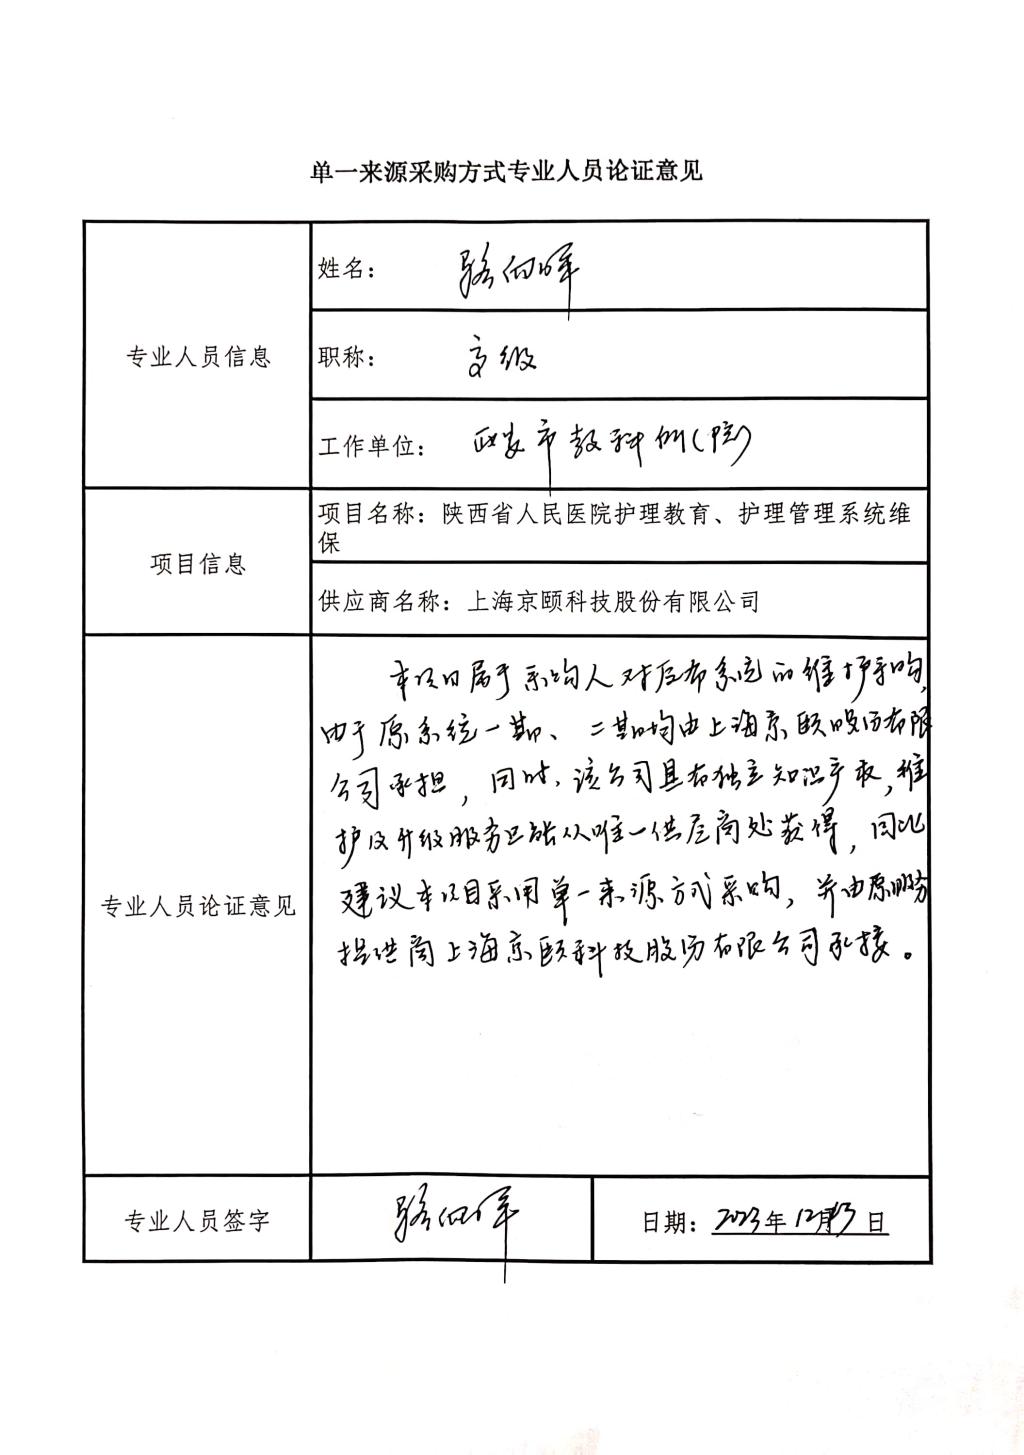 单一来源采购方式专业人员论证意见
专业人员信息
姓名： 骆向晖
职称： 高级
工作单位： 西安市教科所(院)
项目信息
项目名称：陕西省人民医院护理教育、护理管理系统维
保
供应商名称：上海京颐科技股份有限公司
专业人员论证意见
本项目属于采购人对后布系统的维护采购,
由于原系统一期、二期均由上海京颐股份有限
公司承担，同时，该公司具有独立知识产权,维
护及升级服务只能从唯一供应商处获得，因此
建议本项目采用单一来源方式采购，并由原服务
提供商上海京颐科技股份有限公司承接。
专业人员签字
骆向晖
日期：2023年12月13日